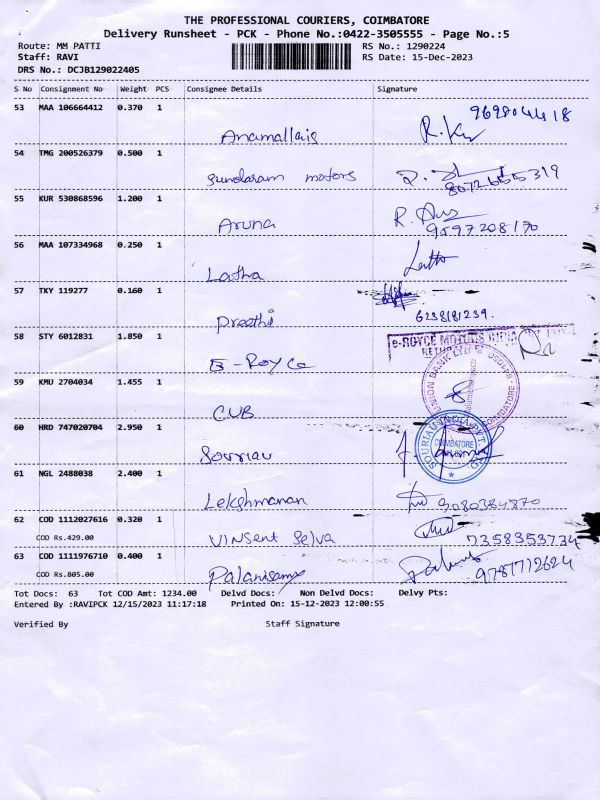 THE PROFESSIONAL COURIERS, COIMBATORE
Delivery Runsheet - PCK - Phone No.:0422-3505555 - Page No.:5
Route: MM PATTI RS No.: 1290224
Staff: RAVI RS Date: 15-Dec-2023
DRS No.: DCJB129022405
S No Consignment No Weight PCS Consignee Details Signature
53 MAA 106664412 0.370 1
Anamallais R.K
54 TMG 200526379 0.500 1
Sundaram motors
55 KUR 530868596 1.200 1
Aruna 9597208170
56 MAA 107334968 0.250 1
Latha Latha
57 TKY 119277 0.160 1
Preethi 6238181239.
58 STY 6012831 1.850 1
e-ROYCE MOTORS INDIA
E-Royce
59 KMU 2704034 1.455 1
UNION BANK LTD COIMBATORE
CUB
60 HRD 747020704 2.950 1
SOURIAU INDIA PVT. LTD COIMBATORE
Souriau
61 NGL 2488038 2.400 1
Lekshmanan 9080384870
62 COD 1112027616 0.320 1
COD Rs.429.00 VINSent Selva 7358353734
63 COD 1111976710 0.400 1
COD Rs.805.00 Palanisamy 9787712624
Tot Docs: 63 Tot COD Amt: 1234.00 Delvd Docs: Non Delvd Docs: Delvy Pts:
Entered By :RAVIPCK 12/15/2023 11:17:18 Printed On: 15-12-2023 12:00:55
Verified By Staff Signature